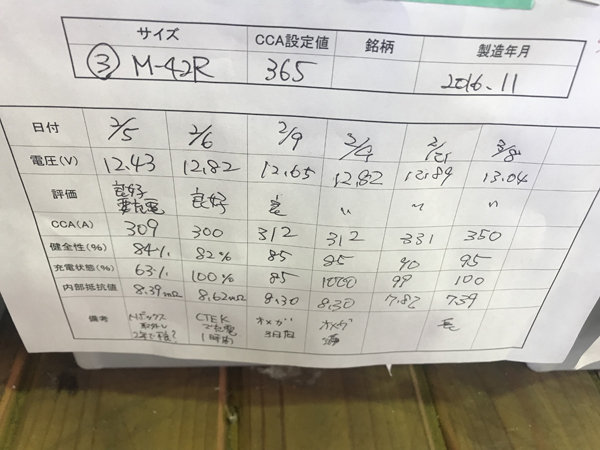 サイズ CCA設定値 銘柄 製造年月
③ M-42R 365 2016.11
日付 2/5 2/6 2/9 3/8
電圧(V) 12.43 12.82 12.65 12.82 12.89 13.04
評価 良好 要充電 良好 良 〃 〃 〃
CCA(A) 309 300 312 312 331 350
健全性(%) 84% 82% 85 85 90 95
充電状態(%) 63% 100% 85 99 100
内部抵抗値 8.39mΩ 8,62mΩ 8.30 8,30 7.82 7.39
備考 CTEK オメガ オメガ
で充電 3日目
1時間